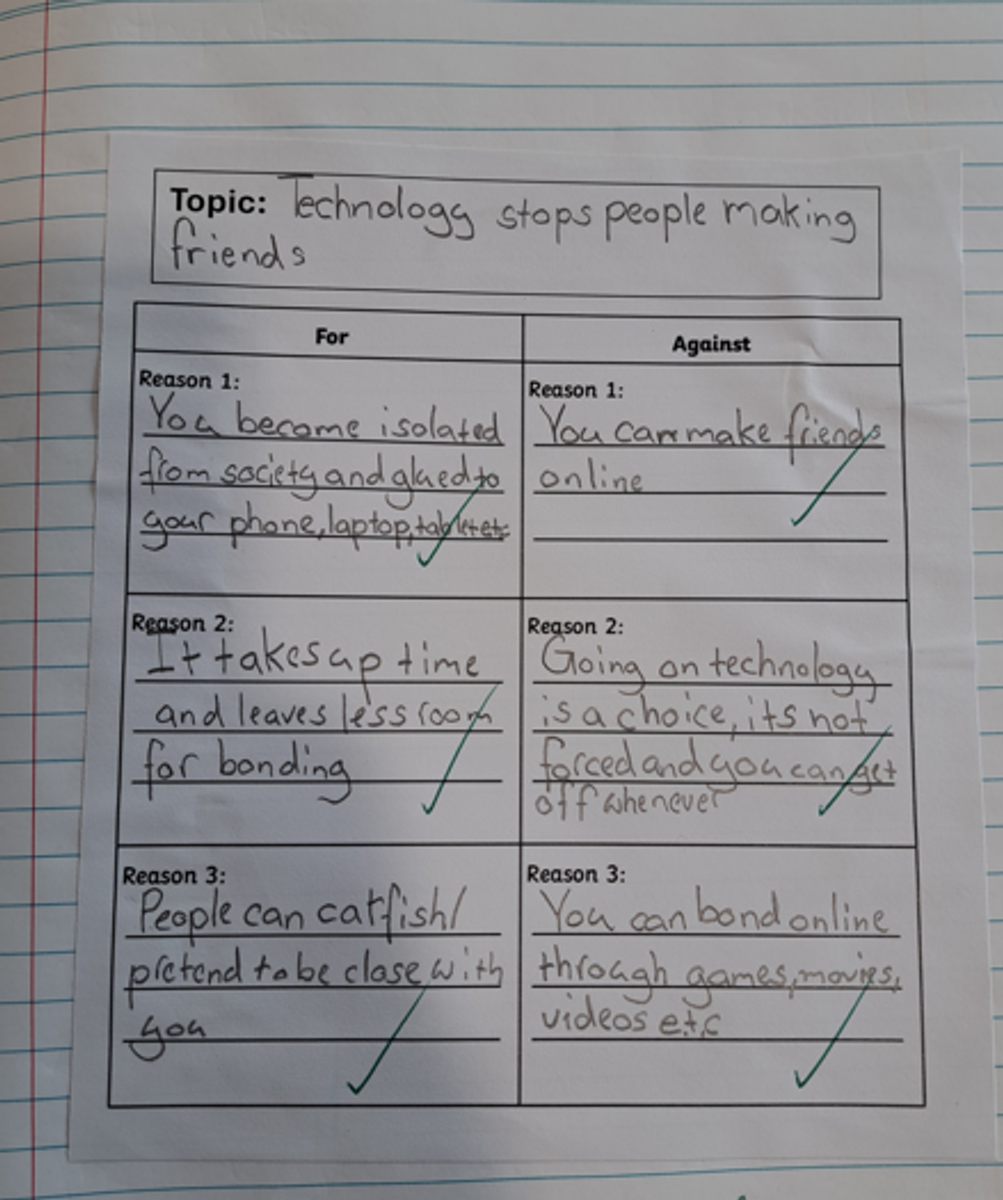 Topic: Technology stops people making
friends
For
Against
Reason 1:
You become isolated
from society and glued to
your phone, laptop, tablet etc
Reason 1:
You can make friends
online
Reason 2:
It takes up time
and leaves less room
for bonding
Reason 2:
Going on technology
is a choice, its not
forced and you can get
off whenever
Reason 3:
People can catfish/
pretend to be close with
you
Reason 3:
You can bond online
through games, movies,
videos etc